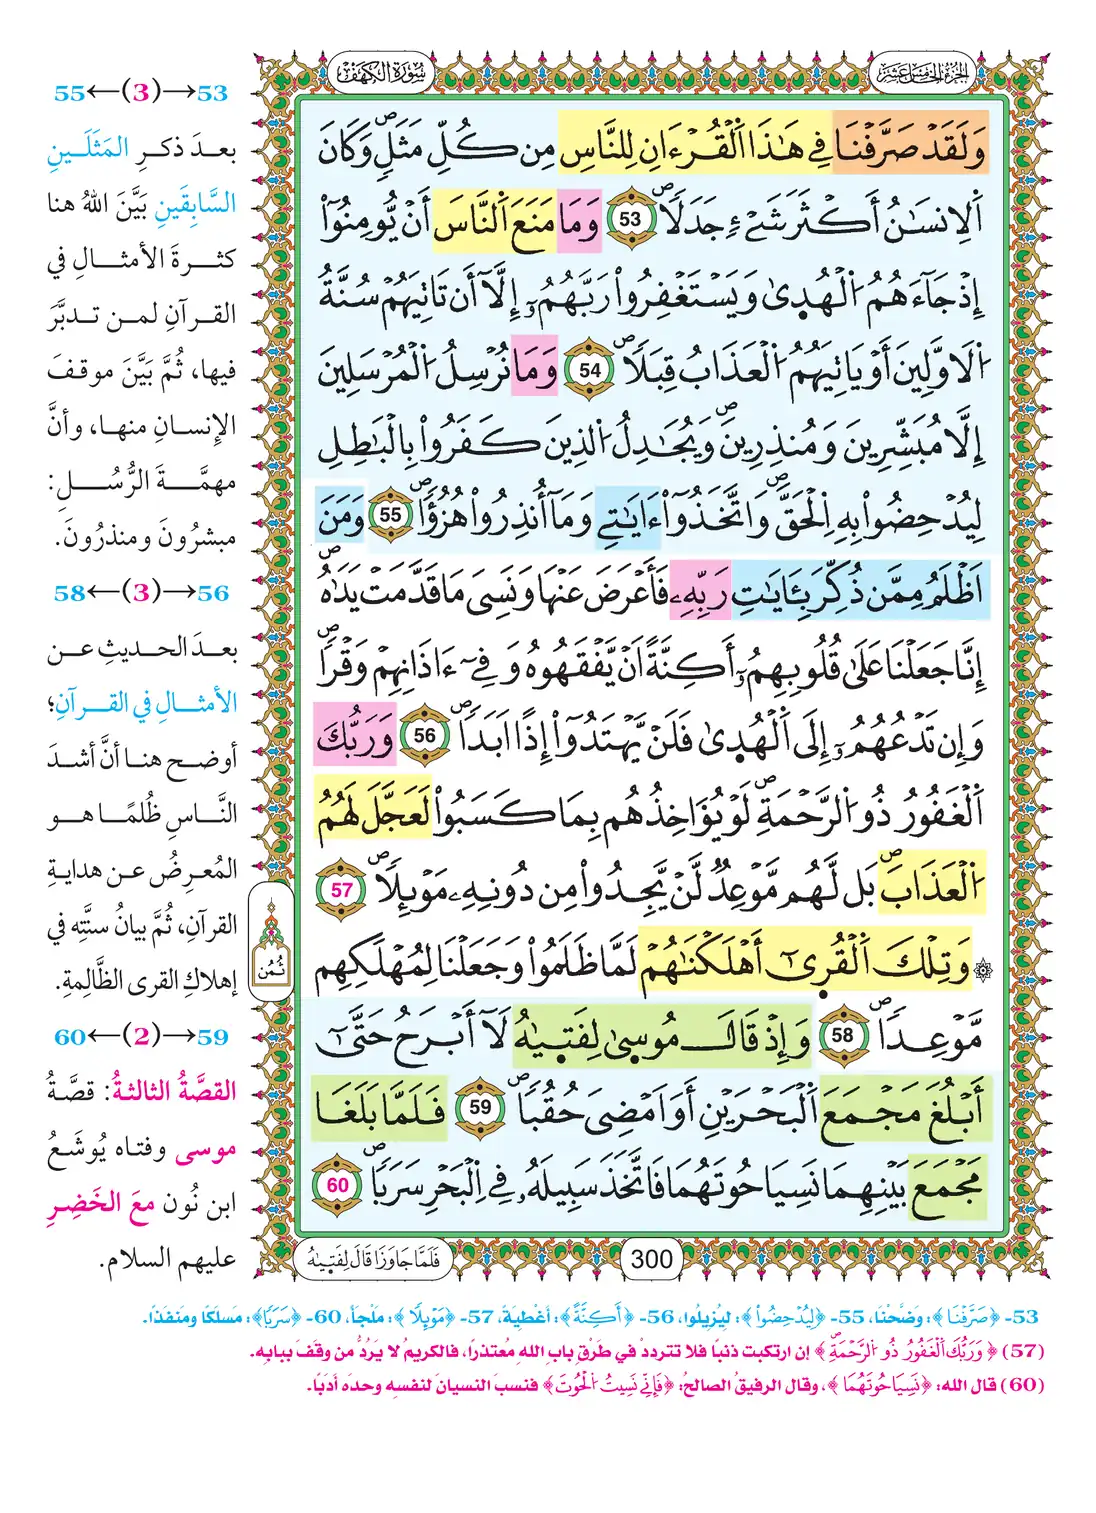 سُورَةُ الكَهْفِ
الجُزءُ الخَامِسَ عَشَرَ
وَلَقَدْ صَرَّفْنَا فِي هَٰذَا اَ۬لْقُرْءَانِ لِلنَّاسِ مِن كُلِّ مَثَلٖۖ وَكَانَ
اَ۬لِانسَٰنُ أَكْثَرَ شَےْءٖ جَدَلاٗۖ 53 وَمَا مَنَعَ اَ۬لنَّاسَ أَنْ يُّومِنُوٓاْ
إِذْ جَآءَهُمُ اُ۬لْهُد۪ىٰ وَيَسْتَغْفِرُواْ رَبَّهُمُۥٓ إِلَّآ أَن تَاتِيَهُمْ سُنَّةُ
اُ۬لَاوَّلِينَ أَوْ يَاتِيَهُمُ اُ۬لْعَذَابُ قِبَلاٗۖ 54 وَمَا نُرْسِلُ اُ۬لْمُرْسَلِينَ
إِلَّا مُبَشِّرِينَ وَمُنذِرِينَۖ وَيُجَٰدِلُ اُ۬لذِينَ كَفَرُواْ بِالْبَٰطِلِ
لِيُدْحِضُواْ بِهِ اِ۬لْحَقَّۖ وَاتَّخَذُوٓاْ ءَايَٰتِے وَمَآ أُنذِرُواْ هُزُؤاٗۖ 55 وَمَنَ
اَظْلَمُ مِمَّن ذُكِّرَ بِـَٔايَٰتِ رَبِّهِۦ فَأَعْرَضَ عَنْهَا وَنَسِيَ مَا قَدَّمَتْ يَدَٰهُۖ
إِنَّا جَعَلْنَا عَلَىٰ قُلُوبِهِمُۥٓ أَكِنَّةً اَنْ يَّفْقَهُوهُ وَفِےٓ ءَاذَانِهِمْ وَقْراٗۖ
وَإِن تَدْعُهُمُۥٓ إِلَى اَ۬لْهُد۪ىٰ فَلَنْ يَّهْتَدُوٓاْ إِذاً اَبَداٗۖ 56 وَرَبُّكَ
اَ۬لْغَفُورُ ذُو اُ۬لرَّحْمَةِۖ لَوْ يُؤَاخِذُهُم بِمَا كَسَبُواْ لَعَجَّلَ لَهُمُ
اُ۬لْعَذَابَۖ بَل لَّهُم مَّوْعِدٞ لَّنْ يَّجِدُواْ مِن دُونِهِۦ مَوْئِلاٗۖ 57
۞ وَتِلْكَ اَ۬لْقُر۪ىٰٓ أَهْلَكْنَٰهُمْ لَمَّا ظَلَمُواْ وَجَعَلْنَا لِمُهْلَكِهِم
مَّوْعِداٗۖ 58 وَإِذْ قَالَ مُوس۪ىٰ لِفَتَىٰهُ لَآ أَبْرَحُ حَتَّىٰٓ
أَبْلُغَ مَجْمَعَ اَ۬لْبَحْرَيْنِ أَوَ اَمْضِيَ حُقُباٗۖ 59 فَلَمَّا بَلَغَا
مَجْمَعَ بَيْنِهِمَا نَسِيَا حُوتَهُمَا فَاتَّخَذَ سَبِيلَهُۥ فِي اِ۬لْبَحْرِ سَرَباٗۖ 60
ثُمُن
300
فَلَمَّا جَاوَزَا قَالَ لِفَتَىٰهُ
53→(3)←55
بعدَ ذكرِ المَثَلَينِ
السَّابِقَينِ بَيَّنَ اللهُ هنا
كثرةَ الأمثالِ في
القرآنِ لمن تدبَّرَ
فيها، ثُمَّ بَيَّنَ موقفَ
الإنسانِ منها، وأنَّ
مهمَّةَ الرُّسُلِ:
مبشرُونَ ومنذرُونَ.
56→(3)←58
بعدَ الحديثِ عن
الأمثالِ في القرآنِ؛
أوضح هنا أنَّ أشدَّ
النَّاسِ ظُلمًا هو
المُعرِضُ عن هدايةِ
القرآنِ، ثُمَّ بيانُ سنَّتِه في
إهلاكِ القرى الظَّالِمةِ.
59→(2)←60
القصَّةُ الثالثةُ: قصَّةُ
موسى وفتاه يُوشَعُ
ابن نُون معَ الخَضِرِ
عليهم السلام.
53- ﴿صَرَّفْنَا﴾: وَضَّحْنَا، 55- ﴿لِيُدْحِضُواْ﴾: لِيُزِيلُوا، 56- ﴿أَكِنَّةً﴾: أَغْطِيَةً، 57- ﴿مَوْئِلاٗ﴾: مَلْجَأً، 60- ﴿سَرَباٗ﴾: مَسلَكًا ومَنفَذًا.
(57) ﴿وَرَبُّكَ اَ۬لْغَفُورُ ذُو اُ۬لرَّحْمَةِۖ﴾ إن ارتكبت ذنبًا فلا تتردد في طَرْقِ بابِ اللهِ مُعتذرا، فالكريمُ لا يَرُدُّ من وقَفَ ببابِه.
(60) قال الله: ﴿نَسِيَا حُوتَهُمَا﴾، وقال الرفيقُ الصالحُ: ﴿فَإِنِّي نَسِيتُ اُ۬لْحُوتَ﴾ فنسبَ النسيانَ لنفسِهِ وحدَه أدبًا.